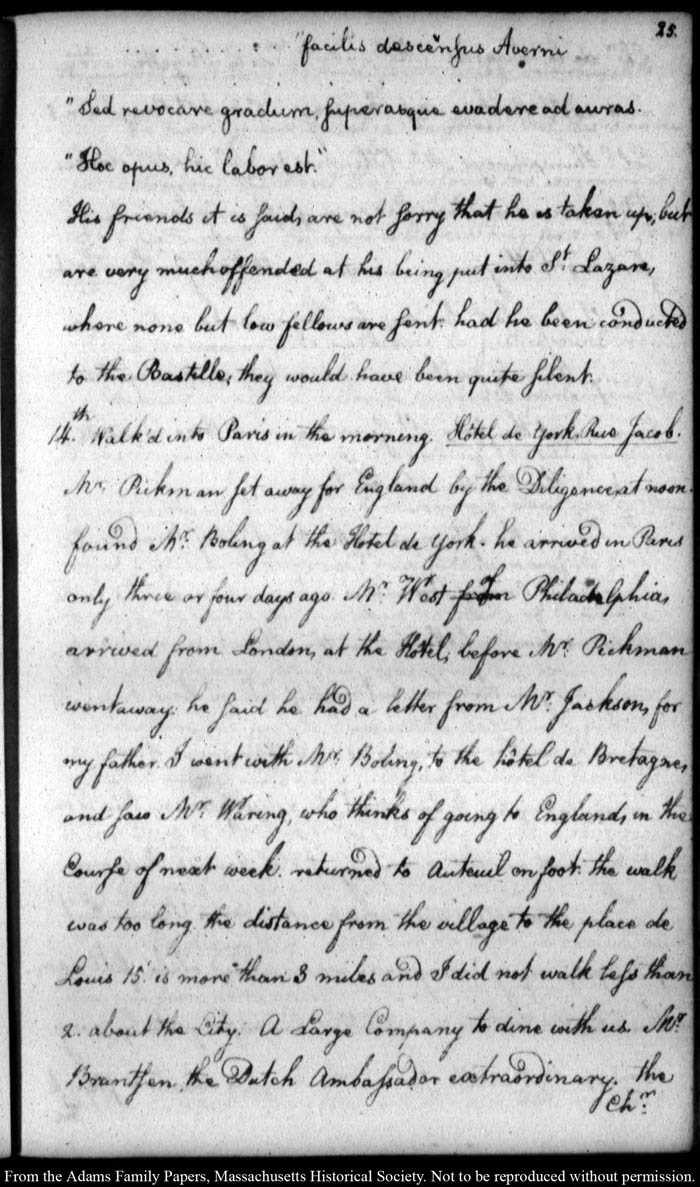 25.
. . . . . . . . . . : . "facilis descensus Averni
"Sed revocare gradum, superasque evadere ad auras.
"Hoc opus, hic labor est."
His friends it is said, are not sorry that he is taken up; but
are very much offended at his being put into St. Lazare,
where none but low fellows are sent. had he been conducted
to the Bastille, they would have been quite silent.
14.th Walk'd into Paris in the morning. Hôtel de York, Rue Jacob.
Mr. Pickman set away for England by the Diligence, at noon.
found Mr. Boling at the Hotel de York. he arrived in Paris
only three or four days ago. Mr. West from Philadelphia,
arrived from London, at the Hôtel, before Mr. Pickman
went away: he said he had a letter from Mr. Jackson, for
my father. I went with Mr. Boling, to the hôtel de Bretagne,
and saw Mr. Waring, who thinks of going to England, in the
Course of next week. returned to Auteuil on foot. the walk
was too long. the distance from the village to the place de
Louis 15. is more than 3 miles and I did not walk less than
2. about the City. A Large Company to dine with us. Mr.
Brantsen, the Dutch Ambassador extraordinary. the
Chr.
From the Adams Family Papers, Massachusetts Historical Society. Not to be reproduced without permission.